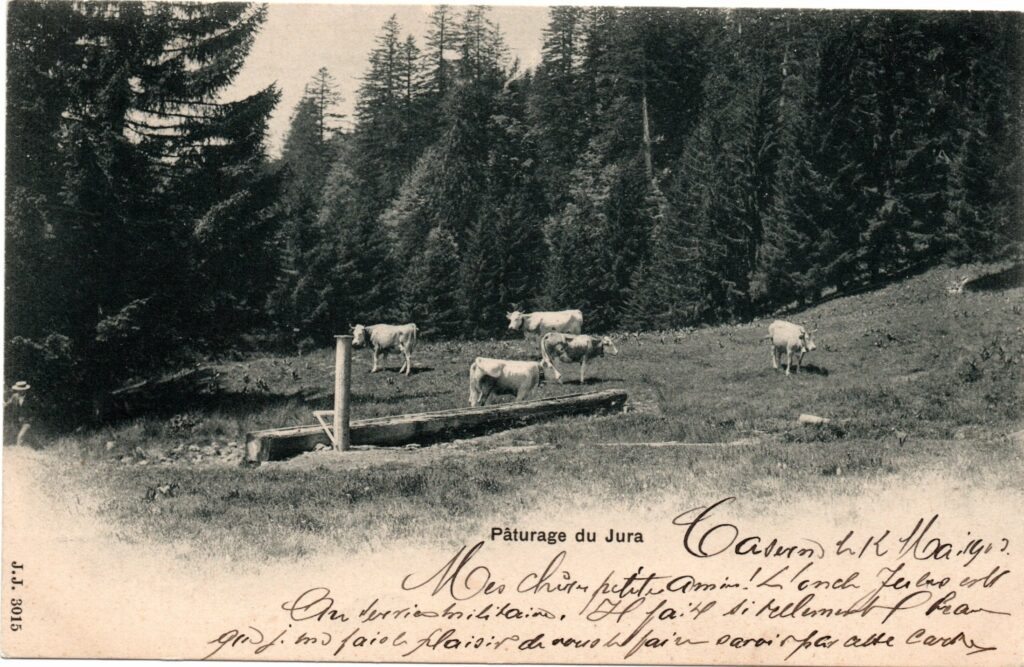 Pâturage du Jura
Caserne le 12 Mai 1903
Mes chères petites amies! L'oncle Jules est
Au service militaire. Il fait si tellement beau
que je me fais le plaisir de vous le faire savoir par cette carte
J.J. 3015